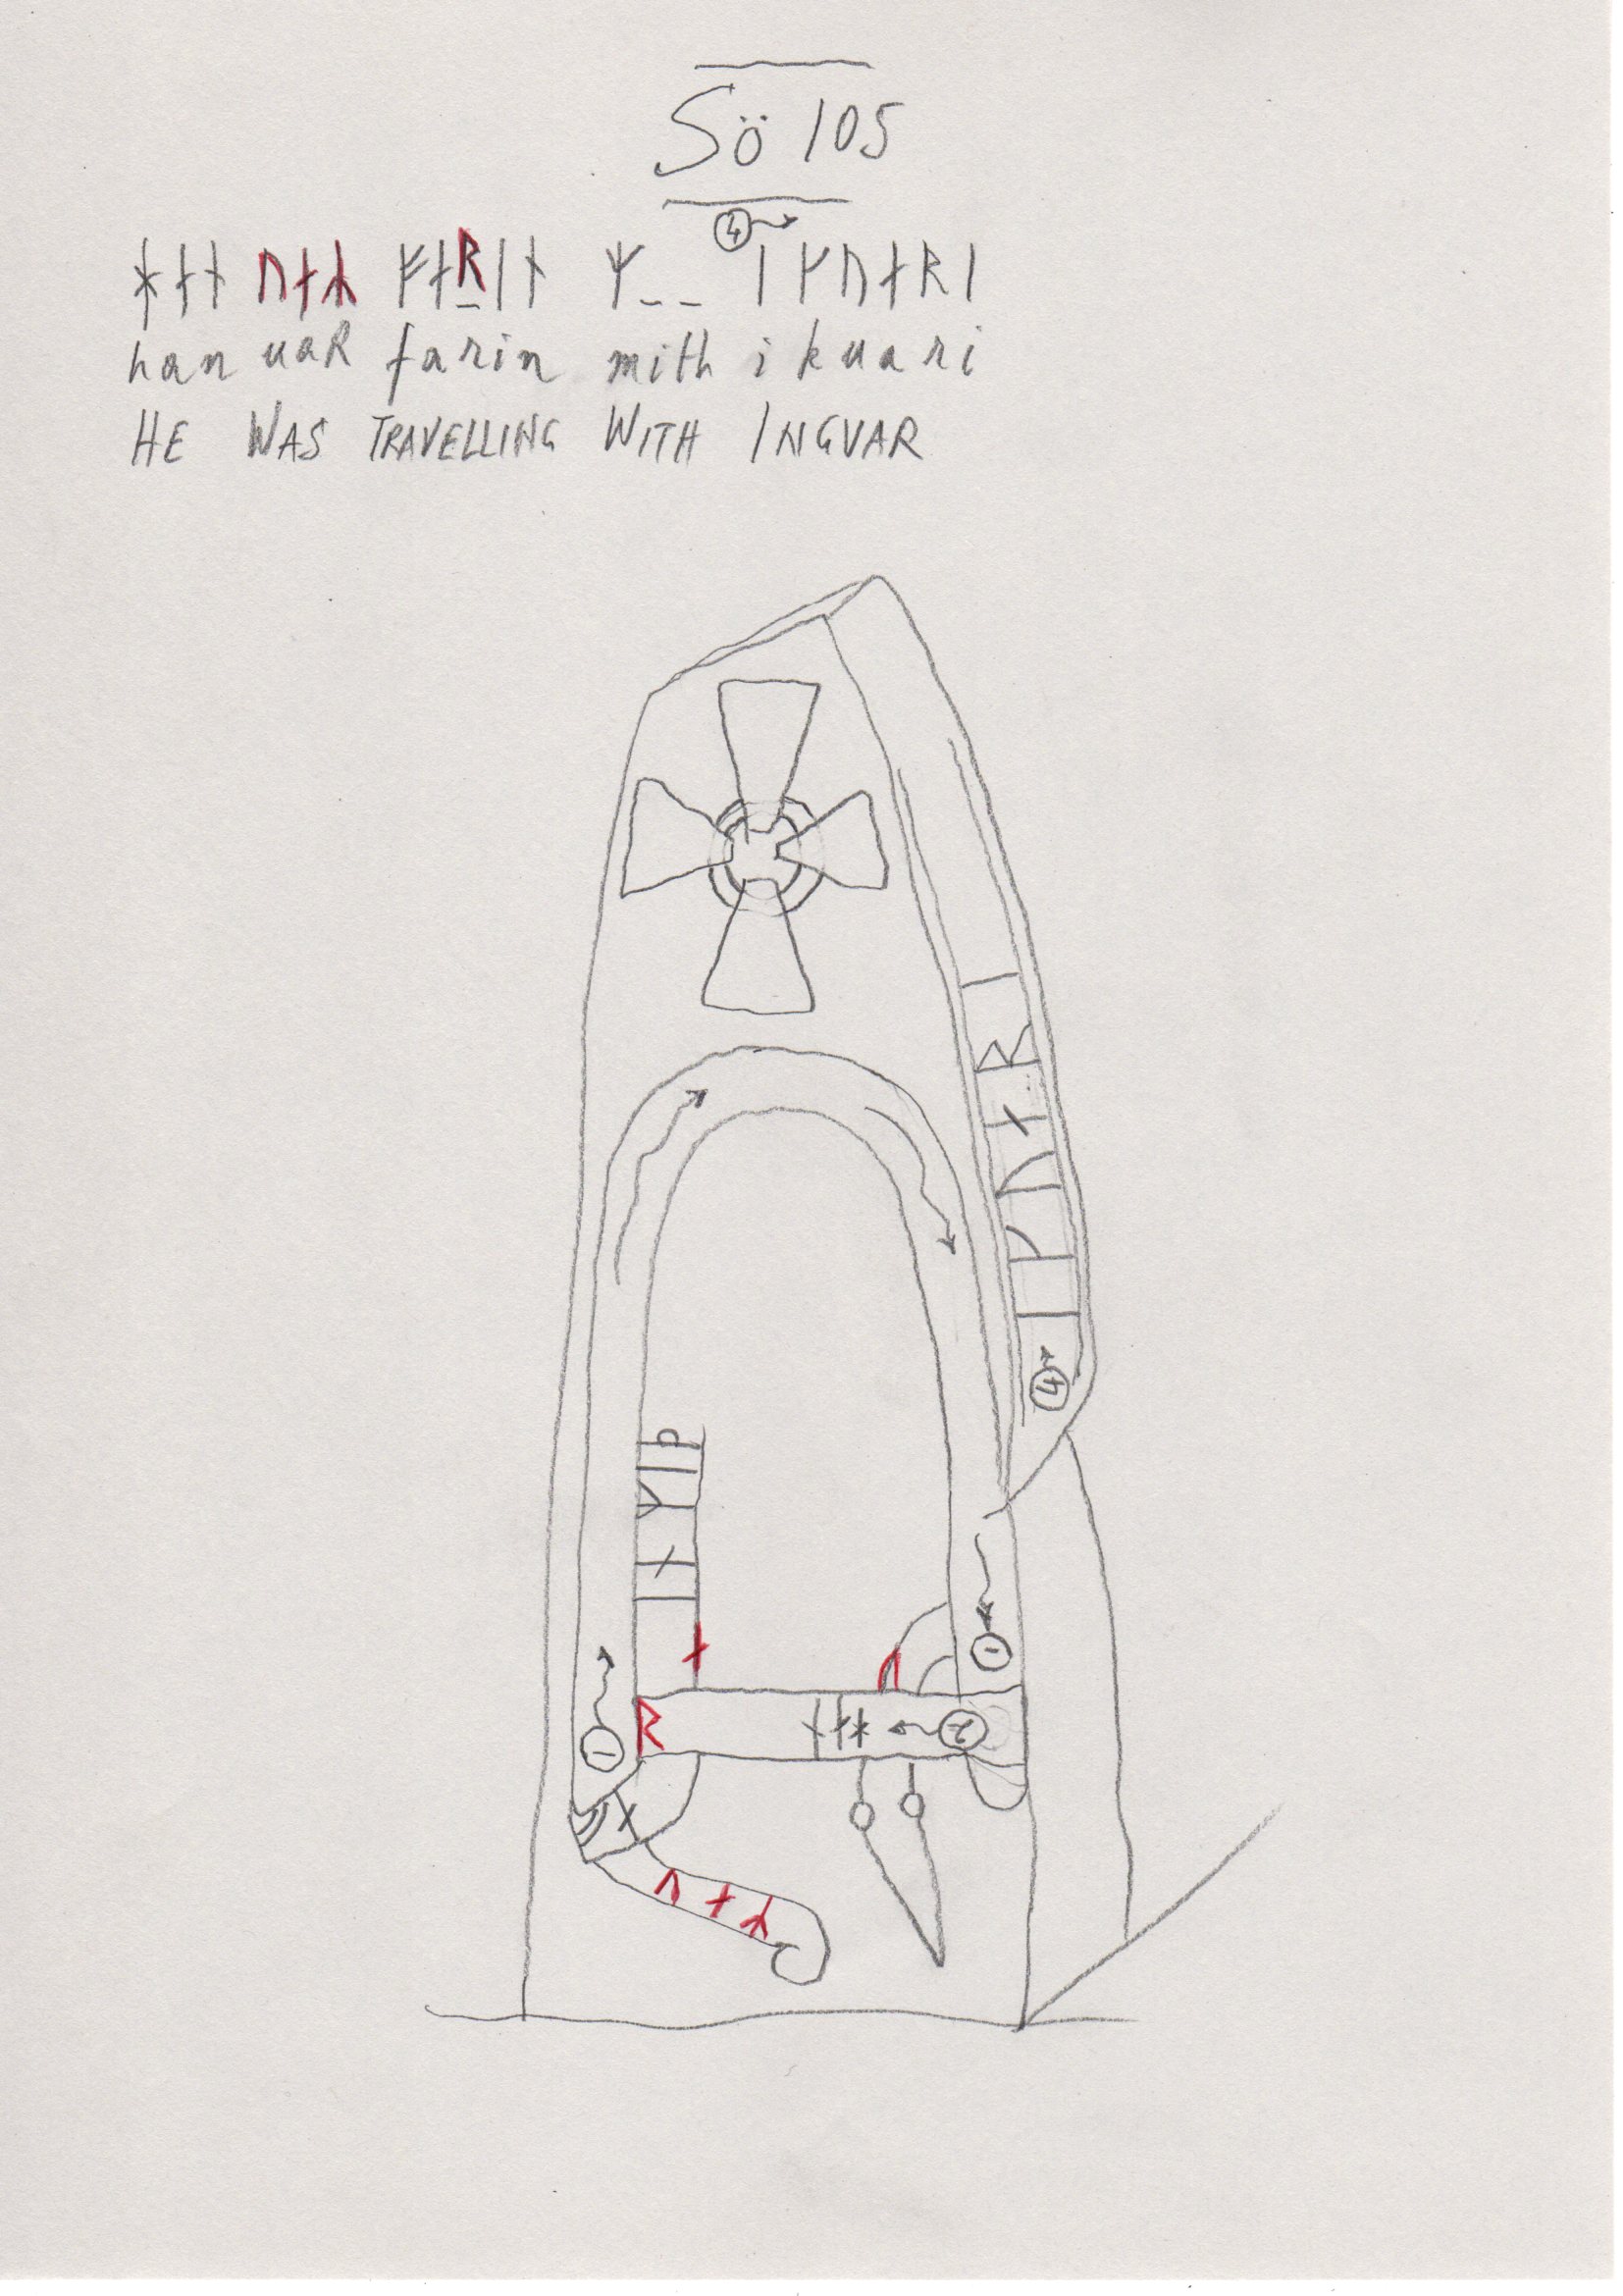 Sö 105
④
ᚼᛅᚾ ᚢᛅᛦ ᚠᛅᚱᛁᚾ ᛘ-- ᛁᚴᚢᛅᚱᛁ
han uaR farin mith i kuari
HE WAS TRAVELLING WITH INGVAR
ᛁᚴᚢᛅᚱᛁ
④
①
①
②
ᚼᛅᚾ
ᚱ
ᚢᛅᛦ